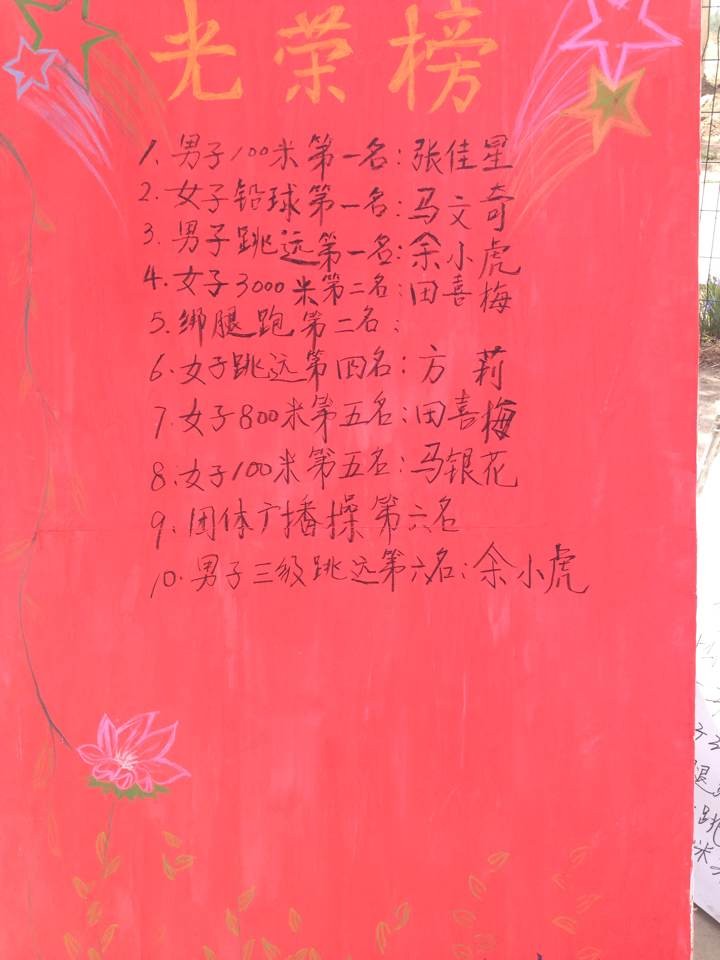 光荣榜
1、男子100米第一名：张佳星
2、女子铅球第一名：马文奇
3、男子跳远第一名：余小虎
4、女子3000米第二名：田喜梅
5、绑腿跑第二名：
6、女子跳远第四名：方莉
7、女子800米第五名：田喜梅
8、女子100米第五名：马银花
9、团体广播操第六名
10、男子三级跳远第六名：余小虎